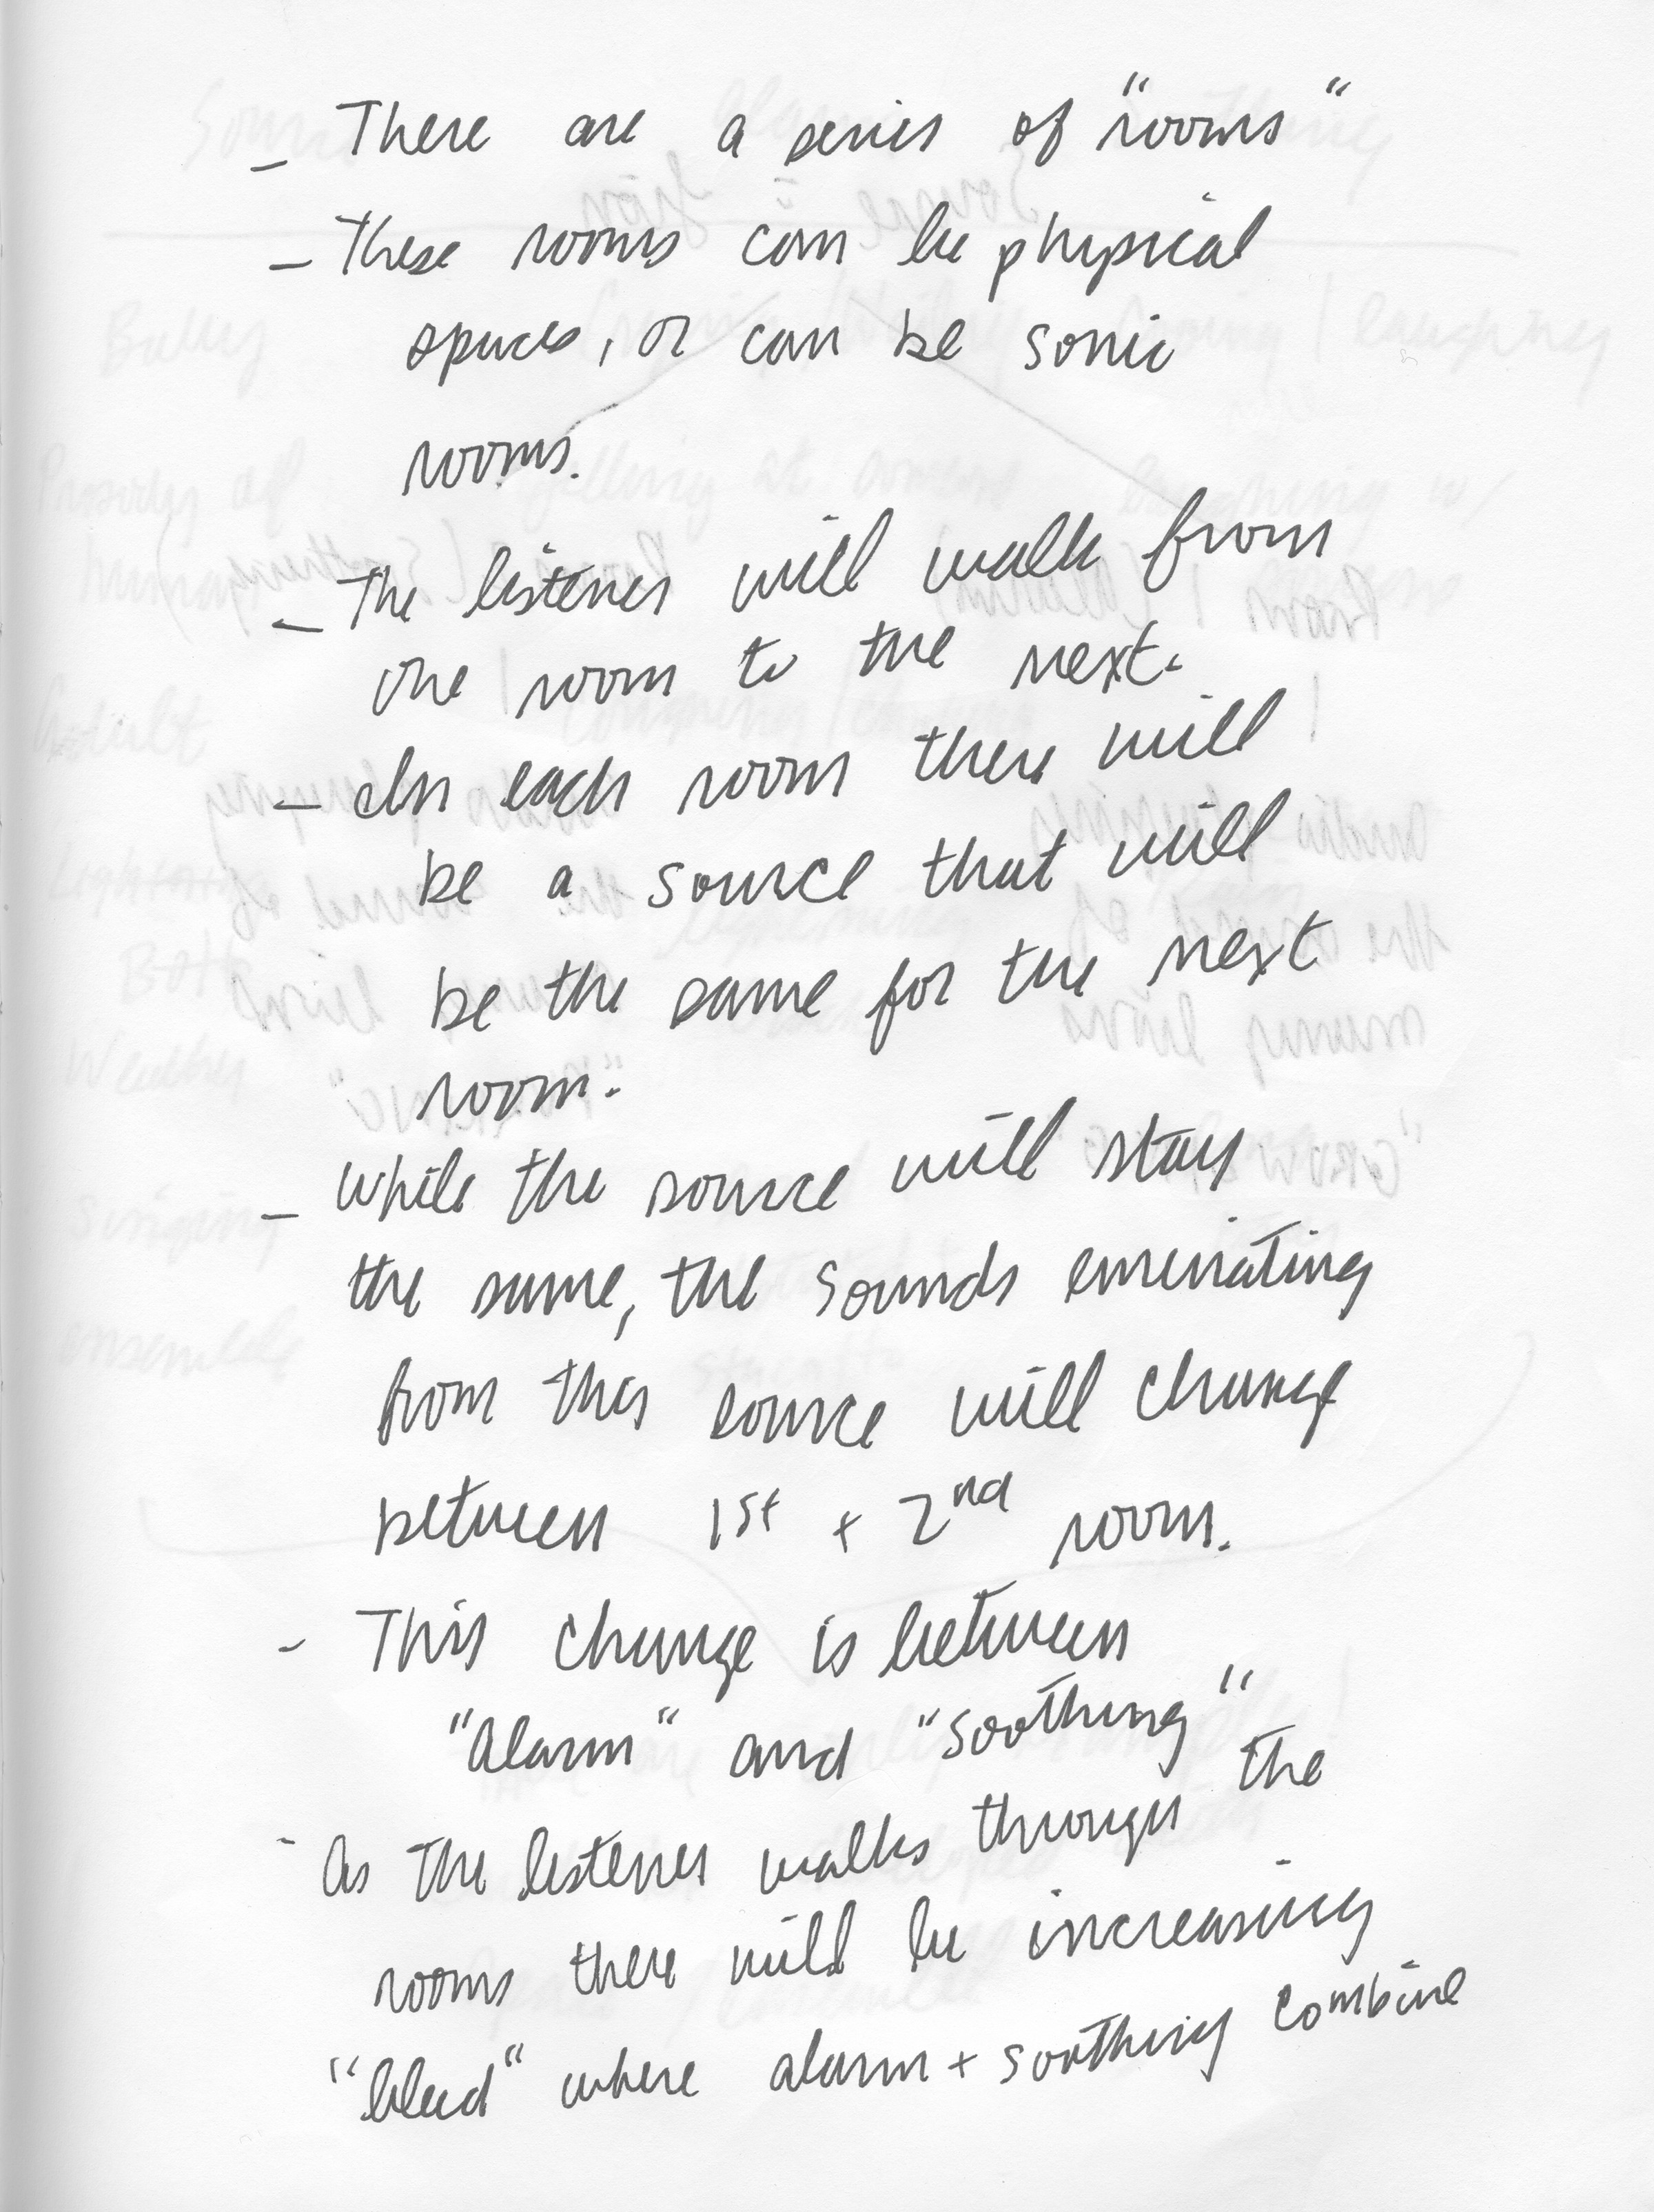 - There are a series of "rooms"
- These rooms can be physical
spaces, or can be sonic
rooms.
- The listener will walk from
one room to the next.
- In each room there will
be a source that will
be the same for the next
room.
- While the source will stay
the same, the sounds emenating
from this source will change
between 1st + 2nd room.
- This change is between
"Alarm" and "Soothing"
- As the listener walks through the
rooms there will be increasing
"bleed" where alarm + soothing combine